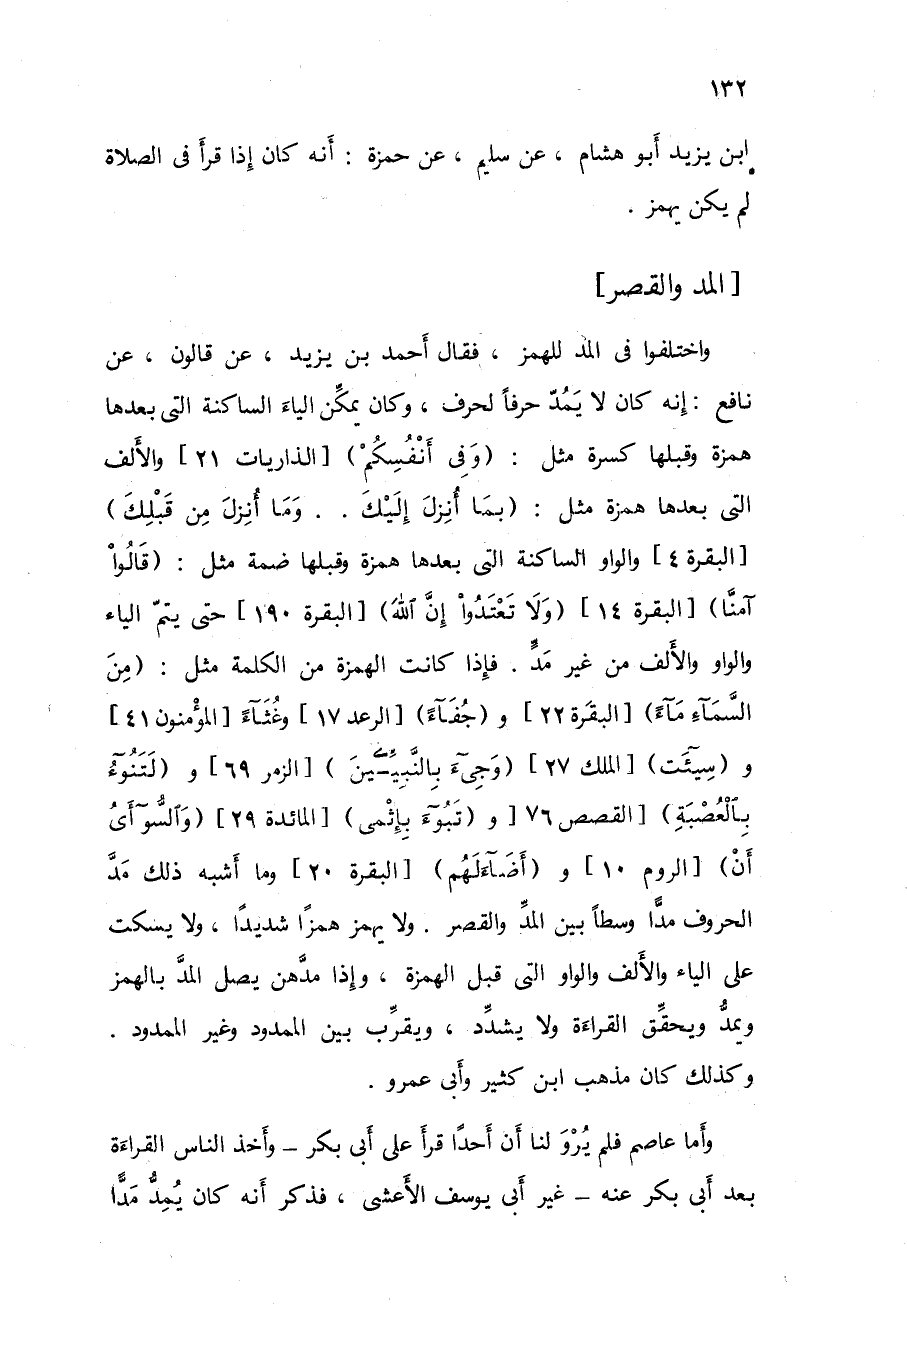 ١٣٢
ابن يزيد أبو هشام ، عن سليم ، عن حمزة : أنه كان إذا قرأ فى الصلاة
لم يكن يهمز .
[ المد والقصر]
واختلفوا فى المدّ للهمز ، فقال أحمد بن يزيد ، عن قالون ، عن
نافع : إنه كان لا يَمُدّ حرفاً لحرف ، وكان يمكِّن الياءَ الساكنة التى بعدها
همزة وقبلها كسرة مثل : (وَفِى أَنْفُسِكُمْ) [الذاريات ٢١ ] والألف
التى بعدها همزة مثل : (بِمَا أُنزِلَ إِلَيْكَ . . وَمَا أُنزِلَ مِن قَبْلِكَ )
[البقرة ٤ ] والواو الساكنة التى بعدها همزة وقبلها ضمة مثل : (قَالُواْ
آمنَّا) [البقرة ١٤ ] (وَلَا تَعْتَدُواْ إِنَّ ٱللهَ) [البقرة ١٩٠ ] حتى يتمّ الياء
والواو والألف من غير مَدٍّ . فإذا كانت الهمزة من الكلمة مثل : (مِنَ
السَّمَآءِ مَآءً) [البقرة ٢٢ ] و (جُفَآءً) [الرعد ١٧ ] وغُثَآءً [المؤْمنون ٤١ ]
و (سِيٓئَت) [الملك ٢٧ ] (وَجِىٓءَ بِالنَّبِيـِّـينَ ) [الزمر ٦٩ ] و (لَتَنُوٓءُ
بِٱلْعُصْبَةِ) [القصص ٧٦ [ و (تَبُوٓءَ بِإِثْمِى) [المائدة ٢٩ ] (وَٱلسُّوٓأَىٰ
أَنْ) [الروم ١٠ ] و (أَضَآءَلَهُم) [البقرة ٢٠ ] وما أشبه ذلك مَدَّ
الحروف مدًّا وسطاً بين المدِّ والقصر . ولا يهمز همزًا شديدًا ، ولا يسكت
على الياء والألف والواو التى قبل الهمزة ، وإذا مدَّهن يصل المدَّ بالهمز
ويمدُّ ويحقِّق القراءة ولا يشدِّد ، ويقرِّب بين الممدود وغير الممدود .
وكذلك كان مذهب ابن كثير وأبى عمرو .
وأما عاصم فلم يُرْوَ لنا أن أحدًا قرأ على أبى بكر – وأخذ الناس القراءة
بعد أبى بكر عنه – غير أبى يوسف الأعشى ، فذكر أنه كان يُمِدُّ مَدًّا